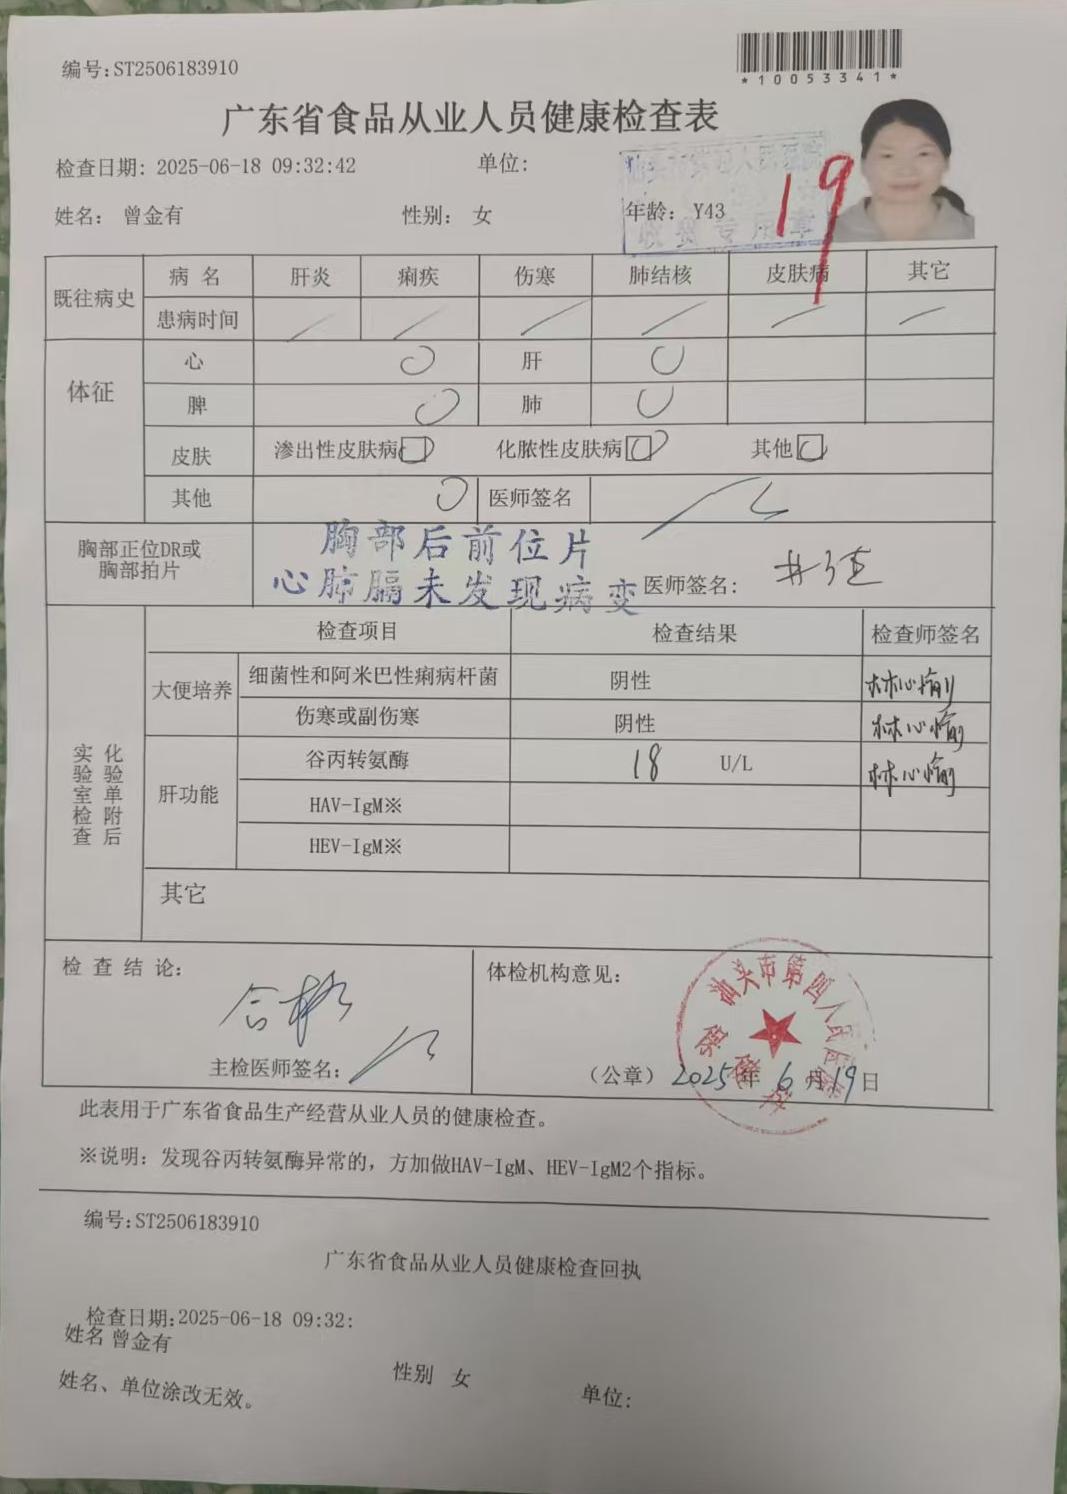 编号:ST2506183910
*10053341*
广东省食品从业人员健康检查表
检查日期: 2025-06-18 09:32:42 单位:
姓名: 曾金有 性别: 女 年龄: Y43
收费专用章
19
既往病史 病名 肝炎 痢疾 伤寒 肺结核 皮肤病 其它
患病时间
体征 心 肝
脾 肺
皮肤 渗出性皮肤病 化脓性皮肤病 其他
其他 医师签名
胸部正位DR或
胸部拍片
胸部后前位片
心肺膈未发现病变 医师签名:
检查项目 检查结果 检查师签名
实验室检查 化验单附后
大便培养 细菌性和阿米巴性痢病杆菌 阴性
伤寒或副伤寒 阴性
肝功能 谷丙转氨酶 18 U/L
HAV-IgM※
HEV-IgM※
其它
检查结论: 合格
主检医师签名:
体检机构意见:
汕头市第四人民医院
(公章) 2025年6月19日
此表用于广东省食品生产经营从业人员的健康检查。
※说明: 发现谷丙转氨酶异常的, 方加做HAV-IgM、HEV-IgM2个指标。
编号:ST2506183910
广东省食品从业人员健康检查回执
检查日期:2025-06-18 09:32:
姓名 曾金有
性别 女
单位:
姓名、单位涂改无效。